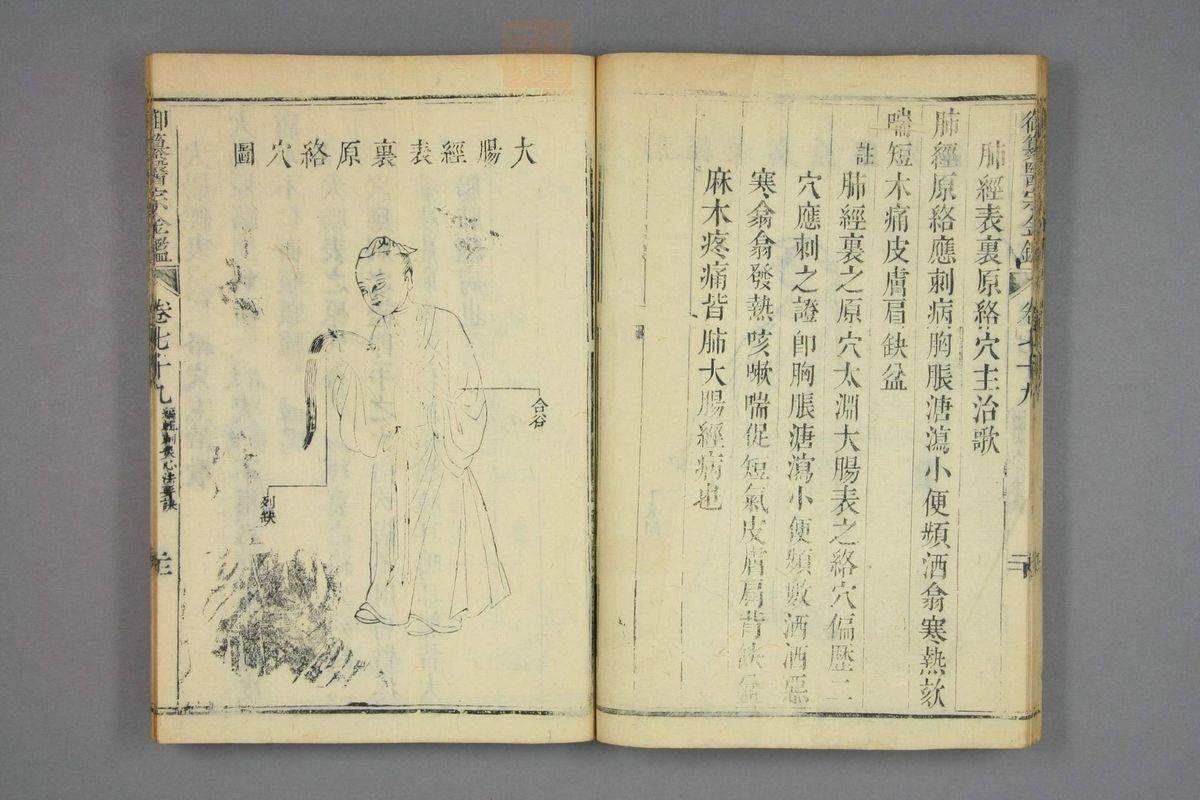 肺經表裏原絡穴主治歌
肺經原絡應刺病胸脹溏瀉小便頻洒翕寒熱欬
喘短木痛皮膚肩缺盆
註
肺經裏之原穴太淵大腸表之絡穴偏歷二
穴應刺之證卽胸脹溏瀉小便頻數洒洒惡
寒翕翕發熱咳嗽喘促短氣皮膚肩背缺盆
麻木疼痛皆肺大腸經病也
大腸經表裏原絡穴圖
合谷
列缺
御纂醫宗金鑑
卷七十九
編輯刺灸心法要訣